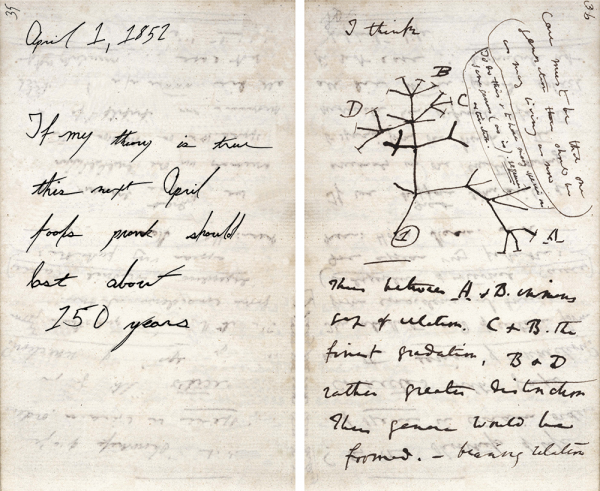 35
April 1, 1852
If my theory is true
this next April
fools prank should
last about
150 years
36
I think
Case must be that one
generation then should be
as many living as now
To do this & to have many species in
same genus (as is) requires
extinction
B
D
C
A
1
Thus between A & B. immens
gap of relation. C & B. the
finest gradation, B & D
rather greater distinction
Thus genera would be
formed. — bearing relation